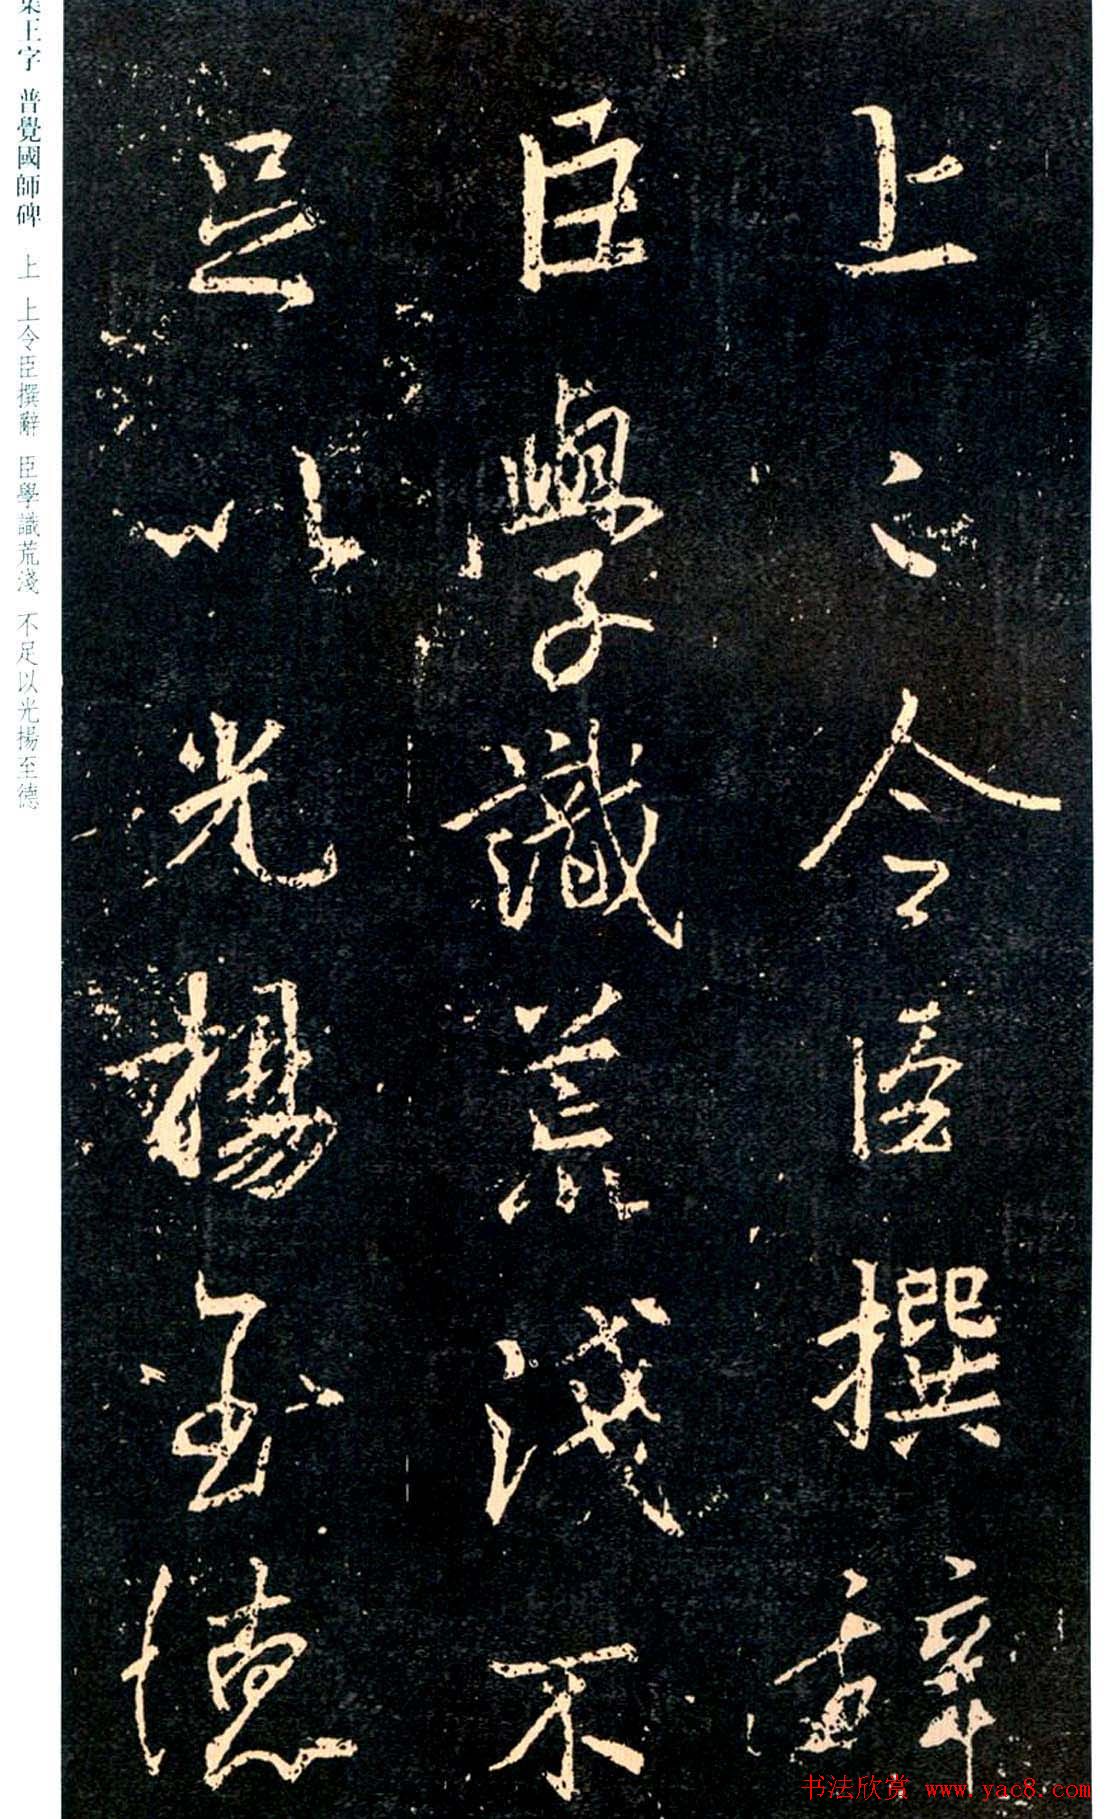 上〻令臣撰辭
臣學識荒淺不
足以光揚至德
集王字 普覺國師碑 上 上令臣撰辭 臣學識荒淺 不足以光揚至德
书法欣赏 www.yac8.com